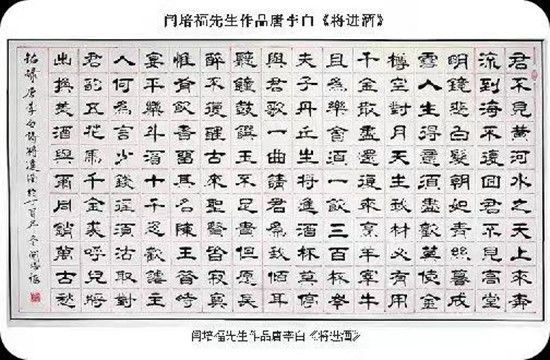 闫培福先生作品唐李白《将进酒》
君不見黃河水之天上來奔
流到海不復回君不見高堂
明鏡悲白髮朝如青絲暮成
雪人生得意須盡歡莫使金
樽空對月天生我材必有用
千金散盡還復來烹羊宰牛
且為樂會須一飲三百杯岑
夫子丹丘生將進酒杯莫停
與君歌一曲請君為我傾耳
聽鐘鼓饌玉不足貴但願長
醉不復醒古來聖賢皆寂寞
惟有飲者留其名陳王昔時
宴平樂斗酒十千恣歡謔主
人何為言少錢徑須沽取對
君酌五花馬千金裘呼兒將
出換美酒與爾同銷萬古愁
唐李白詩將進酒
闫培福先生作品唐李白《将进酒》